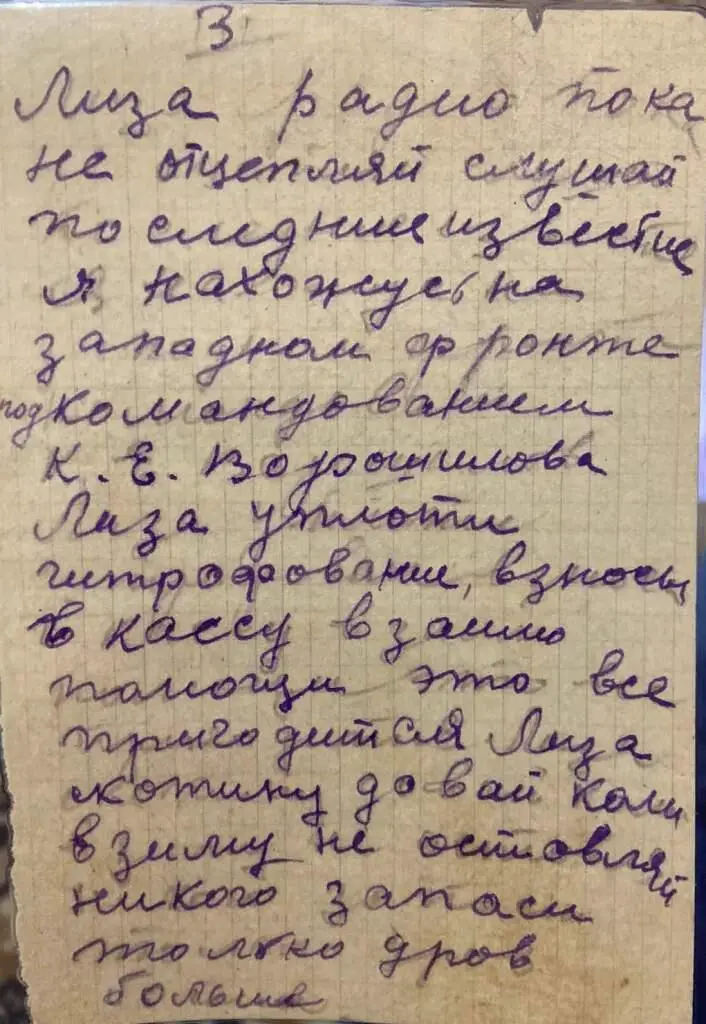 3
Лиза радио пока
не отцепляй слушай
последние известие
я нахожусь на
западном фронте
под командованием
К. Е. Ворошилова
Лиза уплоти
взносы
в кассу взаимо
помощи это все
пригодится Лиза
скотину довай коли
в зиму не оставляй
никого запаси
только дров
больше